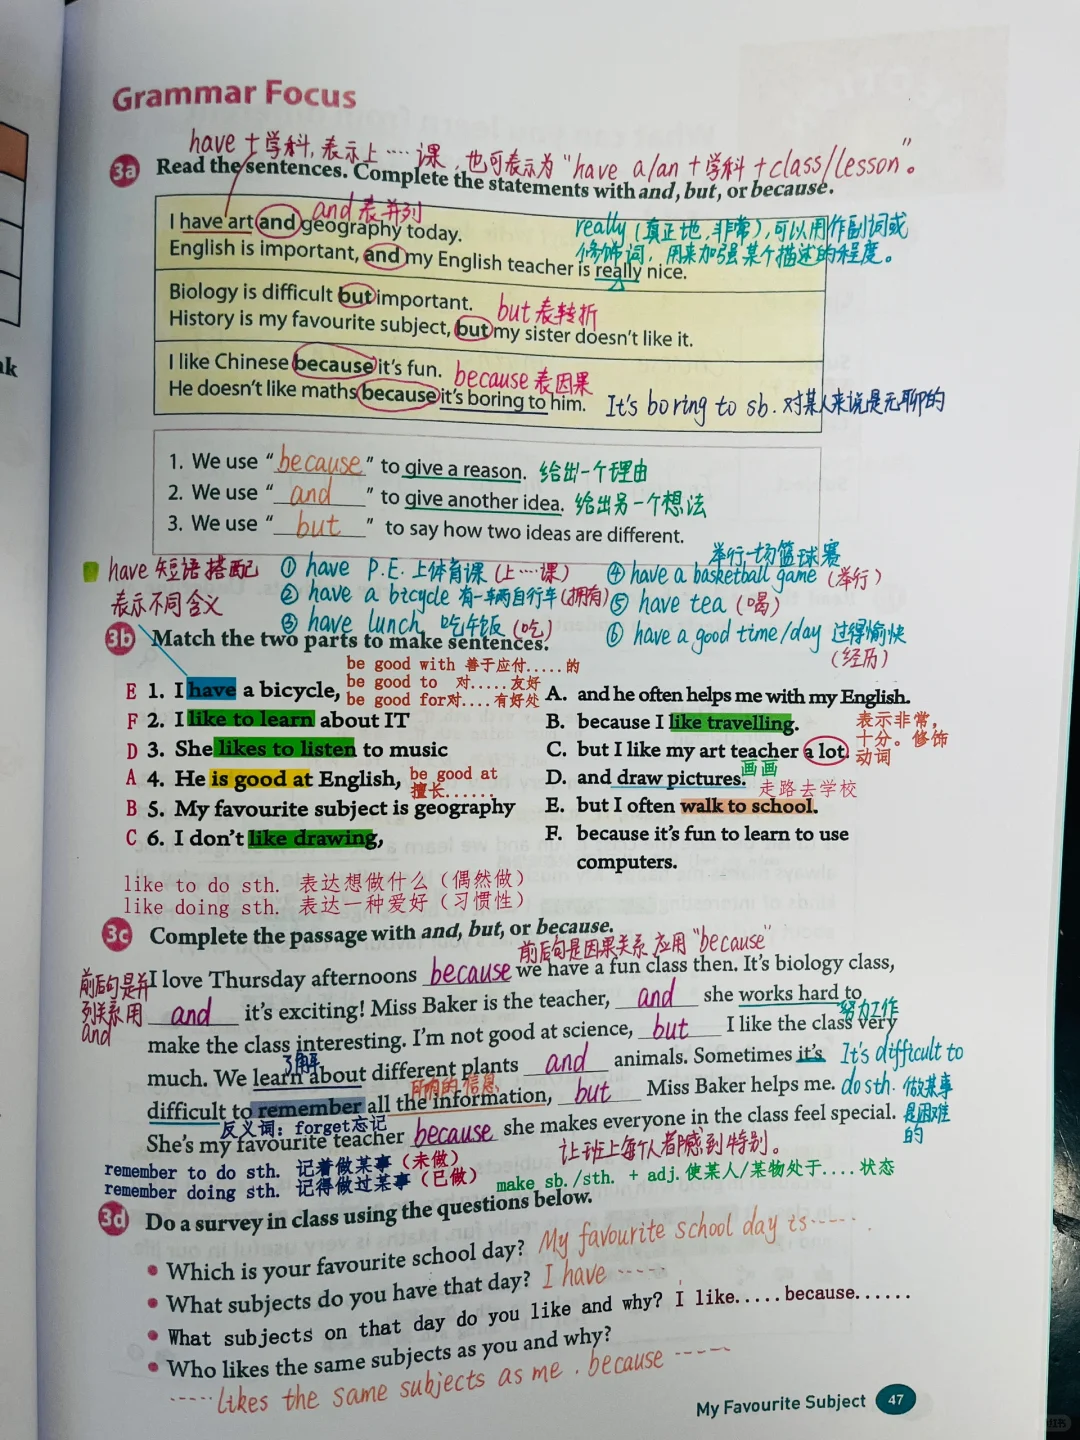 nk
Grammar Focus
have + 学科, 表示上……课, 也可表示为 "have a/an + 学科 + class/lesson"。
3a Read the sentences. Complete the statements with and, but, or because.
and 表并列
I have art and geography today.
really (真正地, 非常), 可以用作副词或
修饰词, 用来加强某个描述的程度。
English is important, and my English teacher is really nice.
Biology is difficult but important.
but 表转折
History is my favourite subject, but my sister doesn't like it.
I like Chinese because it's fun.
because 表因果
He doesn't like maths because it's boring to him.
It's boring to sb. 对某人来说是无聊的
1. We use "because" to give a reason. 给出一个理由
2. We use "and" to give another idea. 给出另一个想法
3. We use "but" to say how two ideas are different.
have 短语搭配
表示不同含义
① have P.E. 上体育课 (上…课)
② have a bicycle 有一辆自行车 (拥有)
③ have lunch 吃午饭 (吃)
举行一场篮球赛
④ have a basketball game (举行)
⑤ have tea (喝)
⑥ have a good time/day 过得愉快
(经历)
3b Match the two parts to make sentences.
be good with 善于应付.....的
be good to 对.....友好
be good for对....有好处
E 1. I have a bicycle,
F 2. I like to learn about IT
D 3. She likes to listen to music
A 4. He is good at English,
be good at
擅长......
B 5. My favourite subject is geography
C 6. I don't like drawing,
A. and he often helps me with my English.
B. because I like travelling.
C. but I like my art teacher a lot.
表示非常,
十分。修饰
动词
D. and draw pictures.
画画
走路去学校
E. but I often walk to school.
F. because it's fun to learn to use
computers.
like to do sth. 表达想做什么（偶然做）
like doing sth. 表达一种爱好（习惯性）
3c Complete the passage with and, but, or because.
前后句是因果关系 应用 "because"
前后句是并
列关系用
and
I love Thursday afternoons because we have a fun class then. It's biology class,
and it's exciting! Miss Baker is the teacher, and she works hard to
努力工作
make the class interesting. I'm not good at science, but I like the class very
了解
much. We learn about different plants and animals. Sometimes it's
It's difficult to
do sth. 做某事
是困难
的
所有的信息
difficult to remember all the information, but Miss Baker helps me.
反义词：forget忘记
She's my favourite teacher because she makes everyone in the class feel special.
让班上每个人都感到特别。
remember to do sth. 记着做某事（未做）
remember doing sth. 记得做过某事（已做）
make sb./sth. + adj. 使某人/某物处于....状态
3d Do a survey in class using the questions below.
• Which is your favourite school day? My favourite school day is……
• What subjects do you have that day? I have ……
• What subjects on that day do you like and why? I like.....because......
• Who likes the same subjects as you and why?
…… likes the same subjects as me. because ……
My Favourite Subject 47